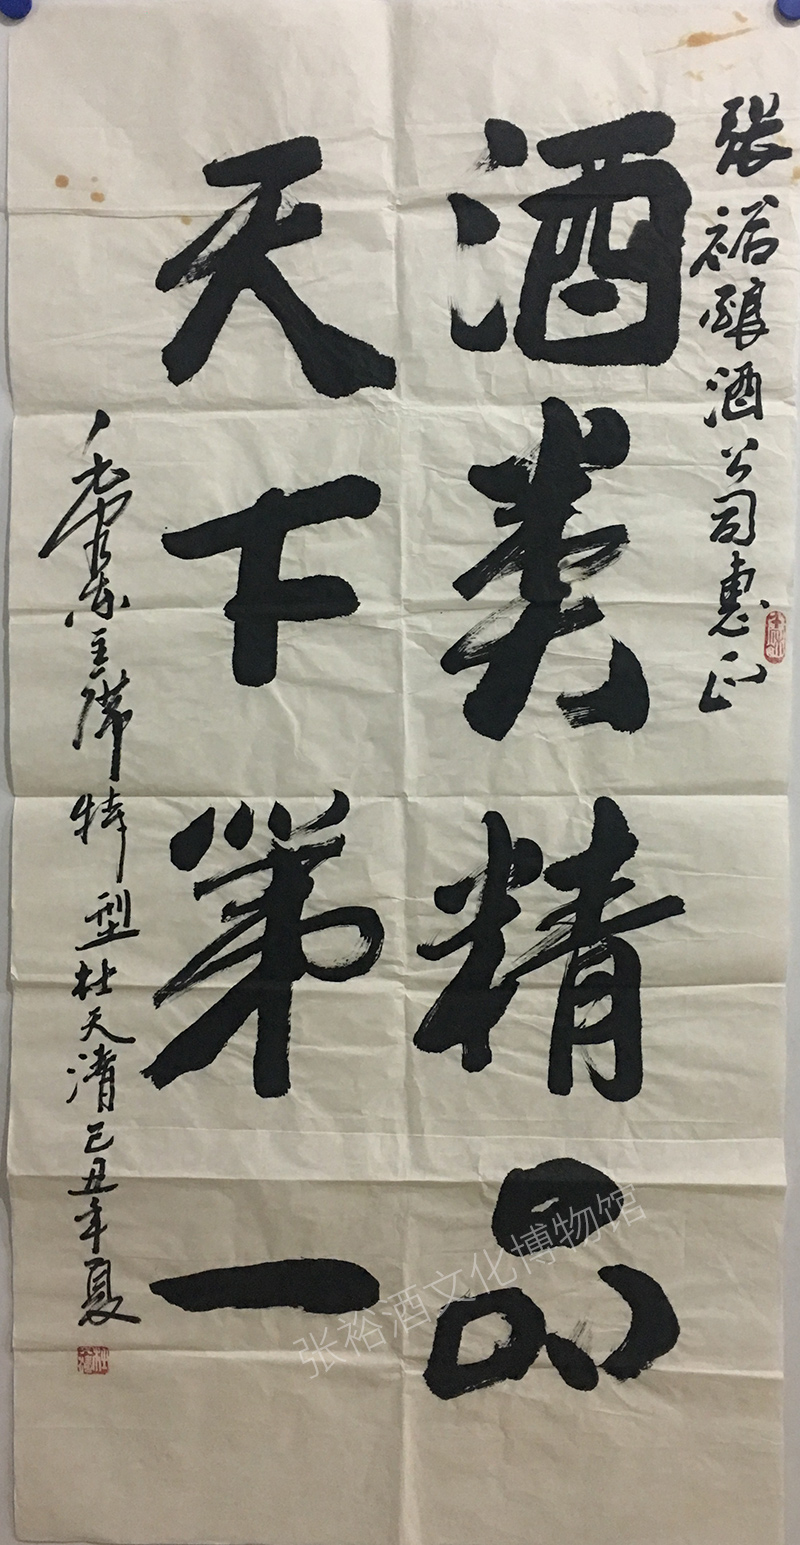 张裕酿酒公司惠正
酒类精品
天下第一
毛泽东主席特型杜天清己丑年夏
张裕酒文化博物馆